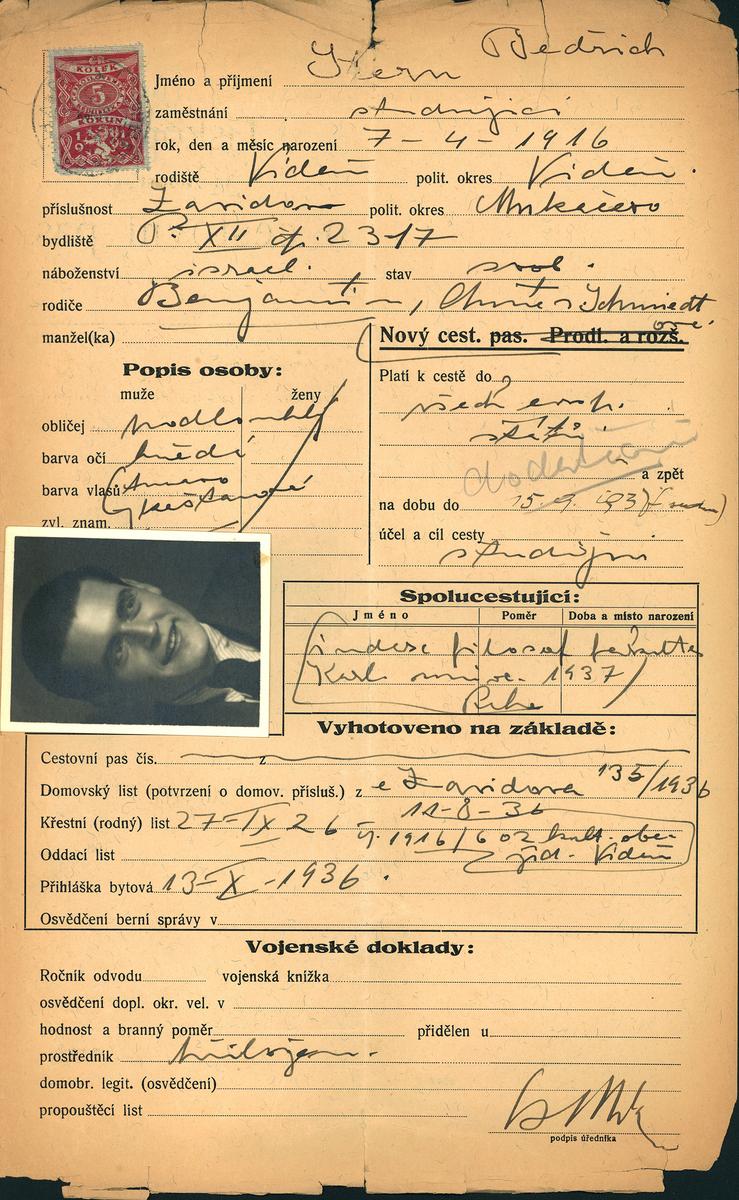 KOLEK
5
KORUN
1919
Jméno a příjmení Stern Bedřich
zaměstnání studující
rok, den a měsíc narození 7-4-1916
rodiště Vídeň polit. okres Vídeň.
příslušnost Zavidovo polit. okres Mukačevo
bydliště P. XII čp. 2317
náboženství israel. stav svob.
rodiče Benjamin,
manžel(ka)
Nový cest. pas. Prodl. a rozš.
Popis osoby:
muže ženy
obličej podlouhlý
barva očí hnědé
barva vlasů tmavo
kaštanové
zvl. znam.
Platí k cestě do
všech evrop.
států
a zpět
na dobu do 15. 9. 1937
účel a cíl cesty
studijní
Spolucestující:
Jméno Poměr Doba a místo narození
index filosof fakulty
Karl. univ. 1937
Vyhotoveno na základě:
Cestovní pas čís. z
Domovský list (potvrzení o domov. přísluš.) z Zavidova 135/1936
11-8-36
Křestní (rodný) list 27-IX 26 1916/6
žid. Vídeň
Oddací list
Přihláška bytová 13-X-1936.
Osvědčení berní správy v
Vojenské doklady:
Ročník odvodu vojenská knížka
osvědčení dopl. okr. vel. v
hodnost a branný poměr přidělen u
prostředník
domobr. legit. (osvědčení)
propouštěcí list
podpis úředníka